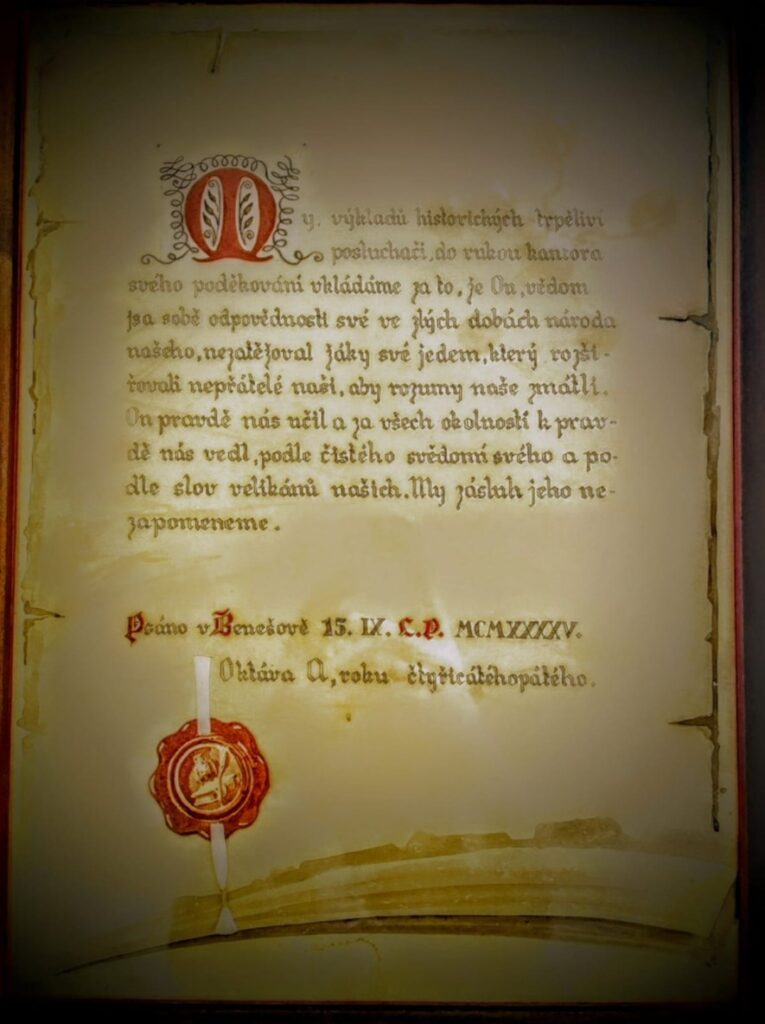 My, výkladů historických trpěliví
posluchači, do rukou kantora
svého poděkování vkládáme za to, že On, vědom
jsa sobě odpovědnosti své ve zlých dobách národa
našeho, nezatěžoval žáky své jedem, který rozši-
řovali nepřátelé naši, aby rozumy naše zmátli.
On pravdě nás učil a za všech okolností k prav-
dě nás vedl, podle čistého svědomí svého a po-
dle slov velikánů našich. My zásluh jeho ne-
zapomeneme.
Psáno v Benešově 15. IX. L.P. MCMXXXXV.
Oktáva A, roku čtyřicátéhopátého.